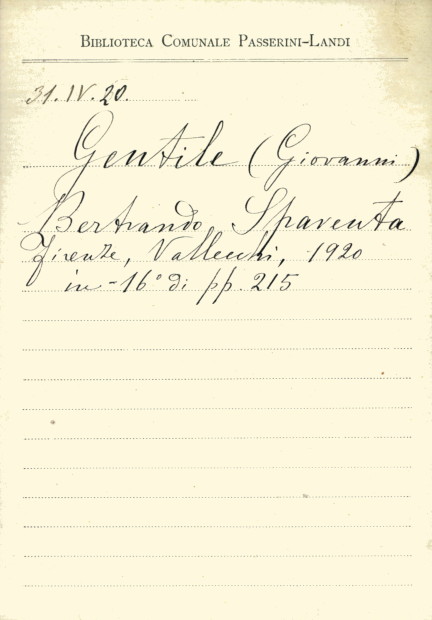 BIBLIOTECA COMUNALE PASSERINI-LANDI
31. IV. 20.
Gentile (Giovanni)
Bertrando Spaventa
Firenze, Vallecchi, 1920
in-16° di pp. 215